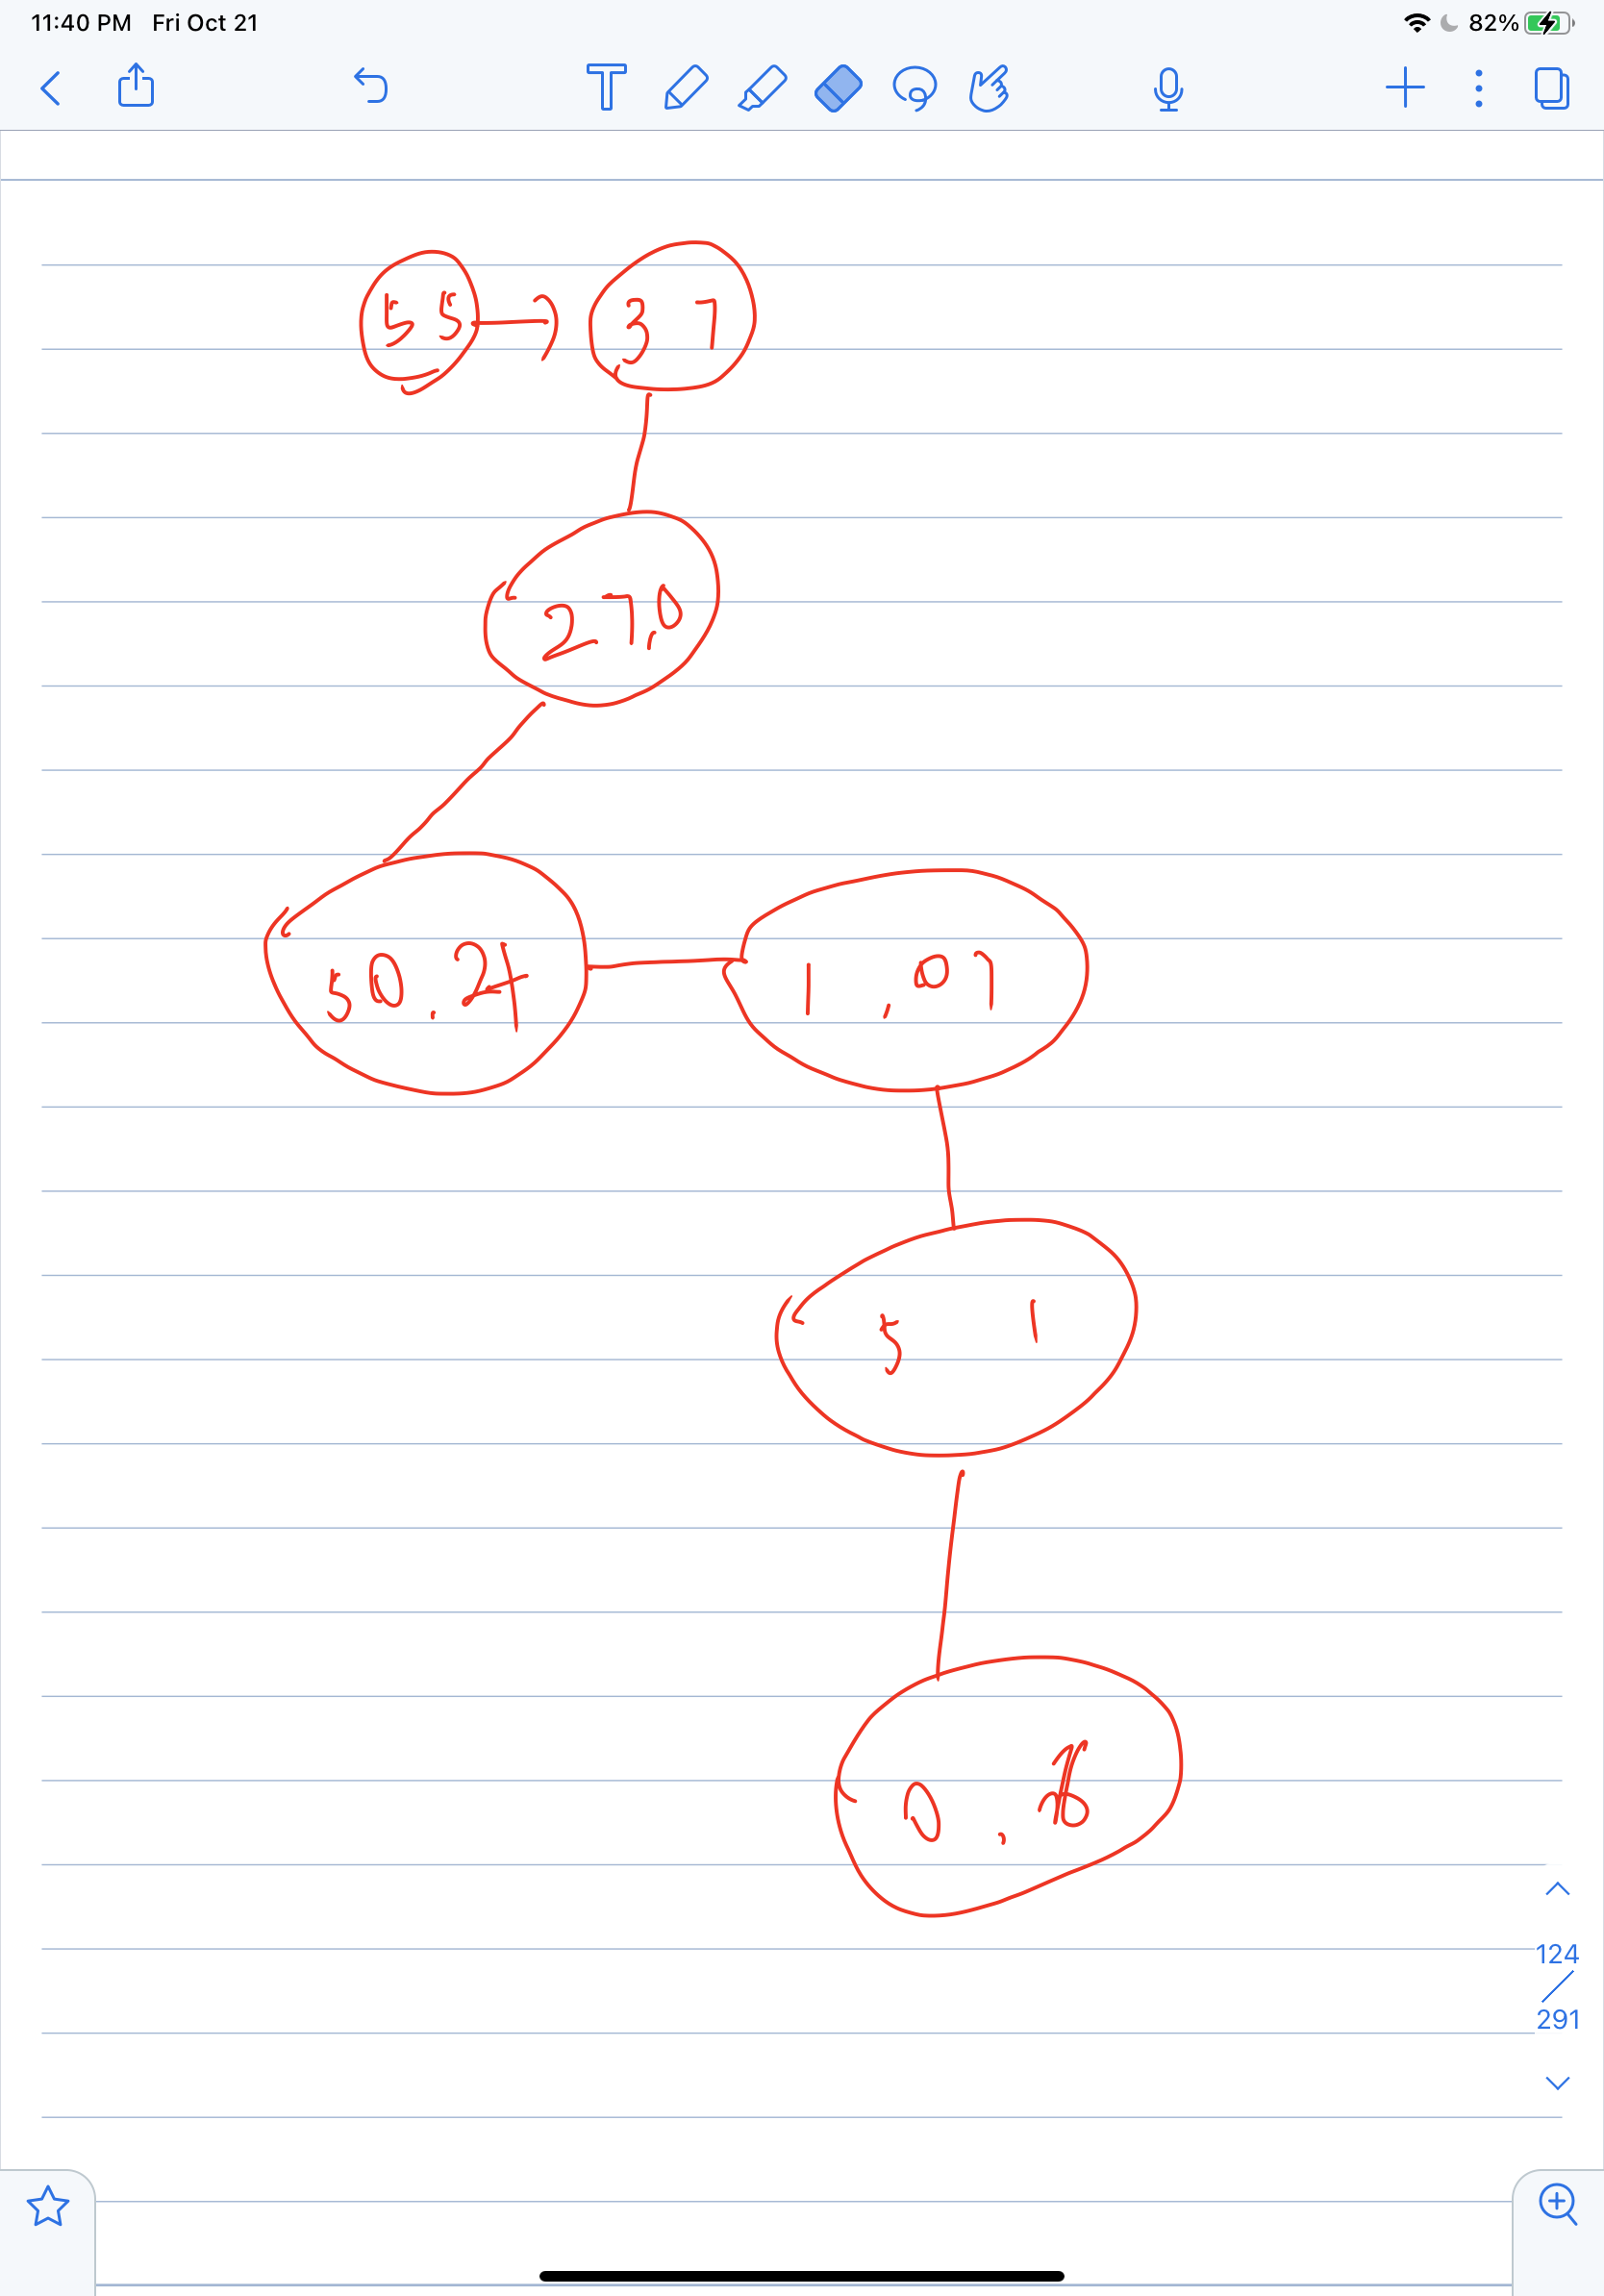 11:40 PM Fri Oct 21 82%
T
55 → 37
27,0
50.24 1,07
5 1
0.
124
291